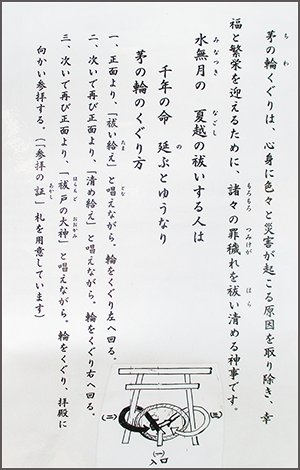 茅の輪くぐりは、心身に色々と災害が起こる原因を取り除き、幸
福と繁栄を迎えるために、諸々の罪穢れを祓い清める神事です。
水無月の 夏越の祓いする人は
千年の命 延ぶとゆうなり
茅の輪のくぐり方
一、正面より、「祓い給え」と唱えながら、輪をくぐり左へ回る。
二、次いで再び正面より、「清め給え」と唱えながら、輪をくぐり右へ回る。
三、次いで再び正面より、「祓戸の大神」と唱えながら、輪をくぐり、拝殿に
向かい参拝する。(「参拝の証」札を用意しています)
(二)
(三)
(一)
入口